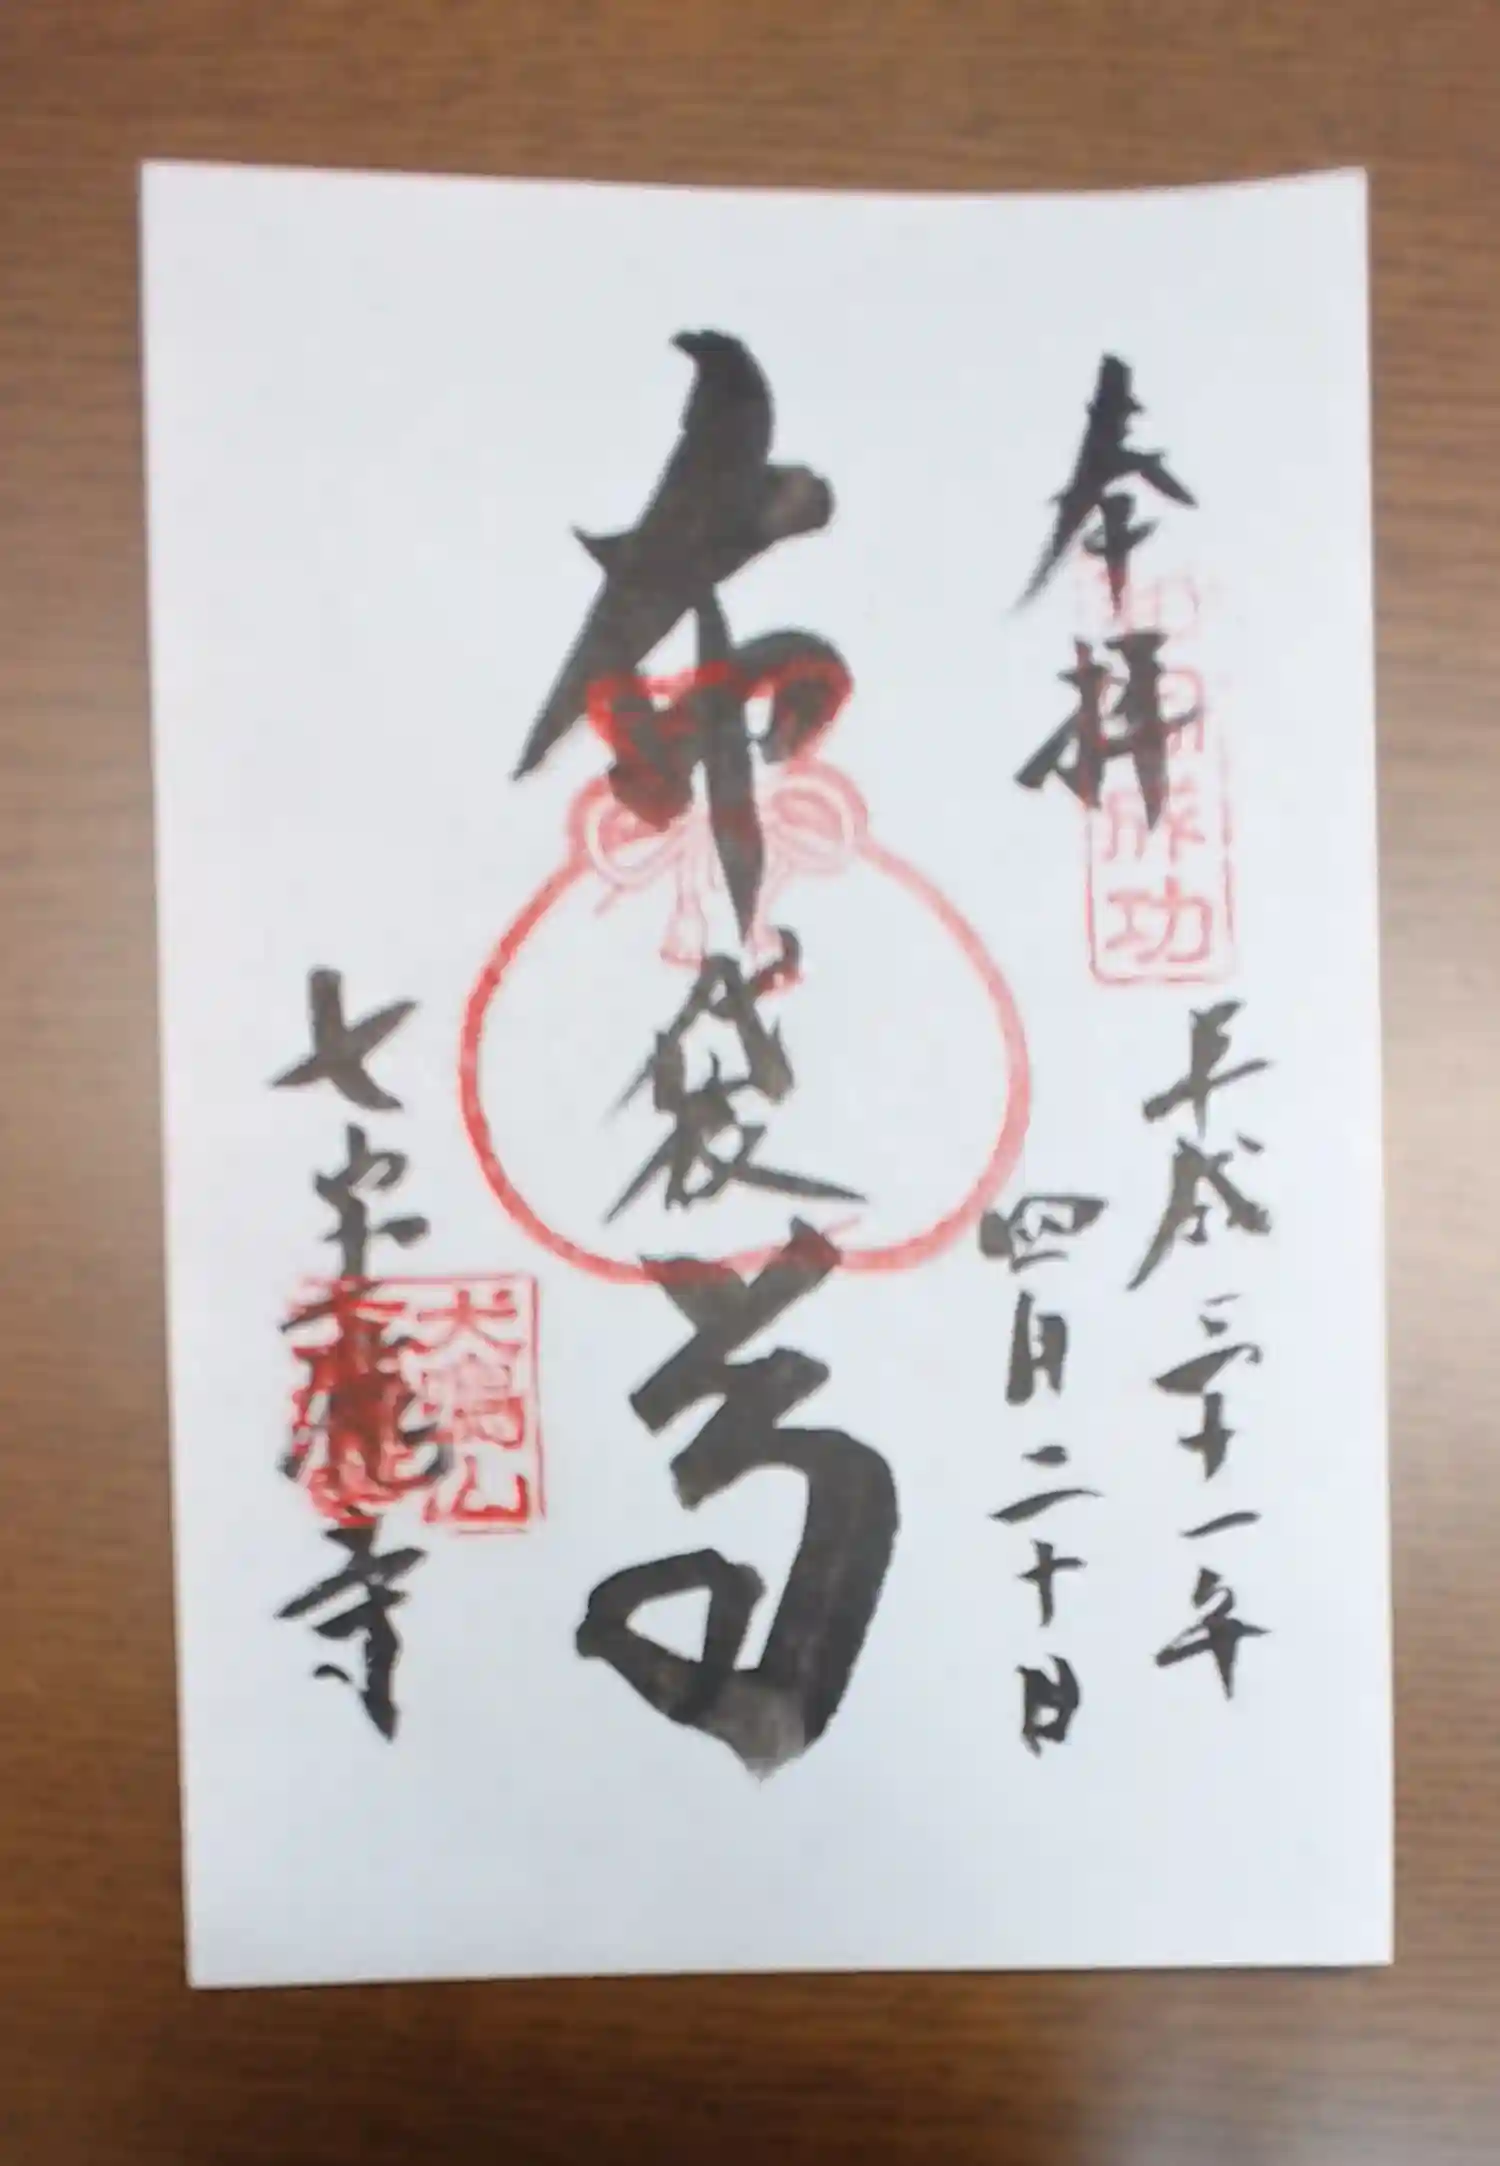 奉拝
功
平成三十一年
四月二十日
布袋尊
七宝瀧寺
犬鳴山